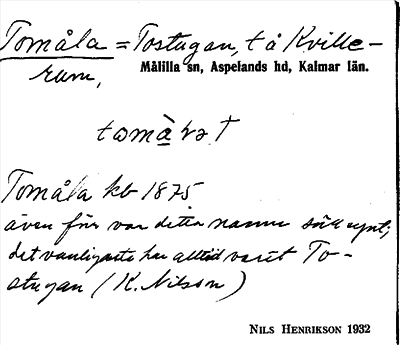 Tomåla = Tostugan, t å Kville-
rum,
Målilla sn, Aspelands hd, Kalmar län.
Tomåla kb 1875
även förr var detta namn sällsynt;
det vanligaste har alltid varit To-
stugan (K. Nilson)
NILS HENRIKSON 1932